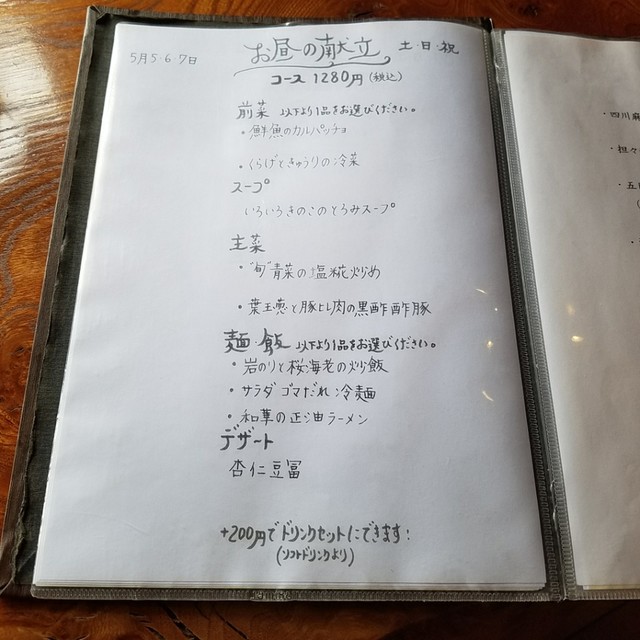 5月5 6 7日
お昼の献立 土・日・祝
コース 1280円(税込)
前菜 以下より1品をお選びください。
・鮮魚のカルパッチョ
・くらげときゅうりの冷菜
スープ
いろいろきのこのとろみスープ
主菜
・"旬"青菜の塩糀炒め
・葉玉葱と豚ヒレ肉の黒酢酢豚
麺・飯 以下より1品をお選びください。
・岩のりと桜海老の炒飯
・サラダゴマだれ冷麺
・和草の正油ラーメン
デザート
杏仁豆冨
+200円でドリンクセットにできます!
(ソフトドリンクより)
・四川麻
・担々
・五目